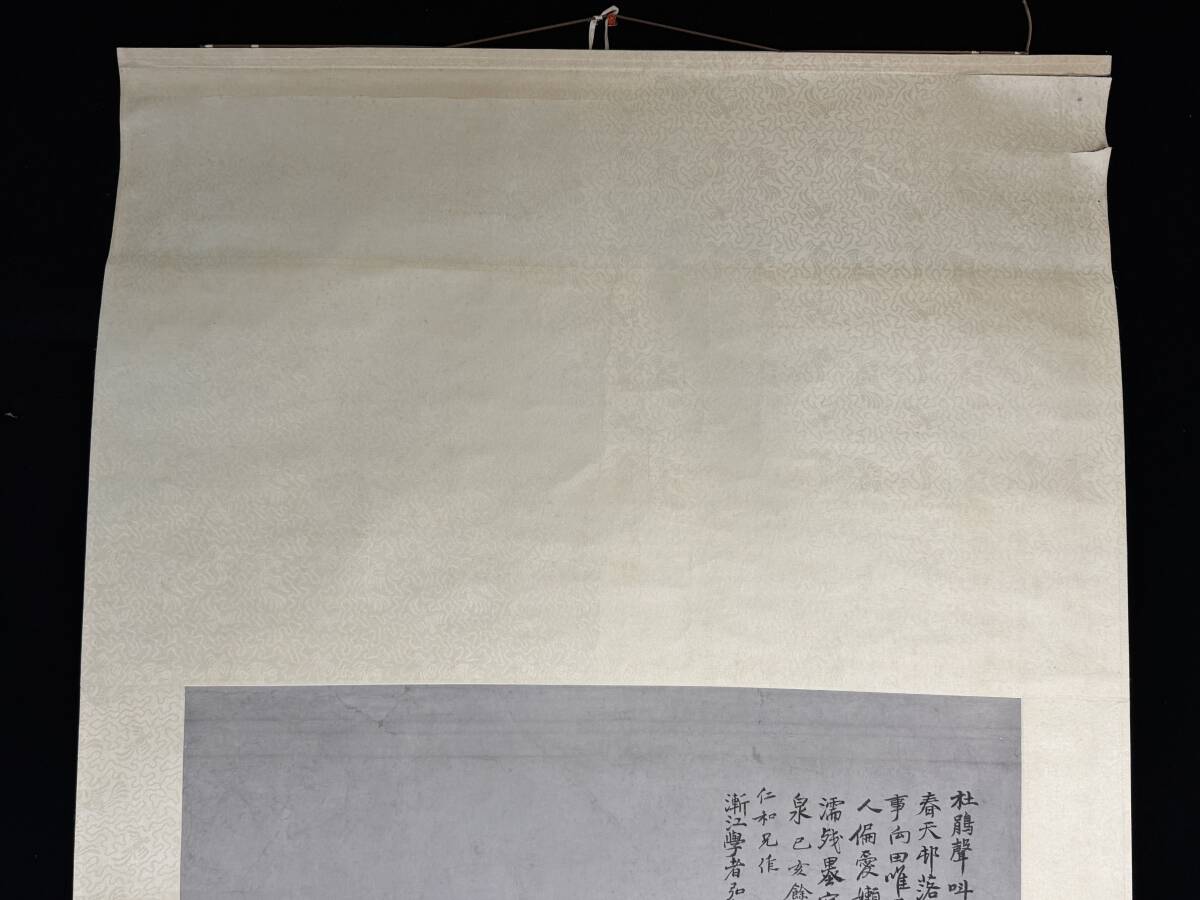 杜鵑聲叫
春天邨落
事向田唯
人偏愛嬾
濡殘墨寫
泉 己亥餘
仁和兄作
漸江學者弘